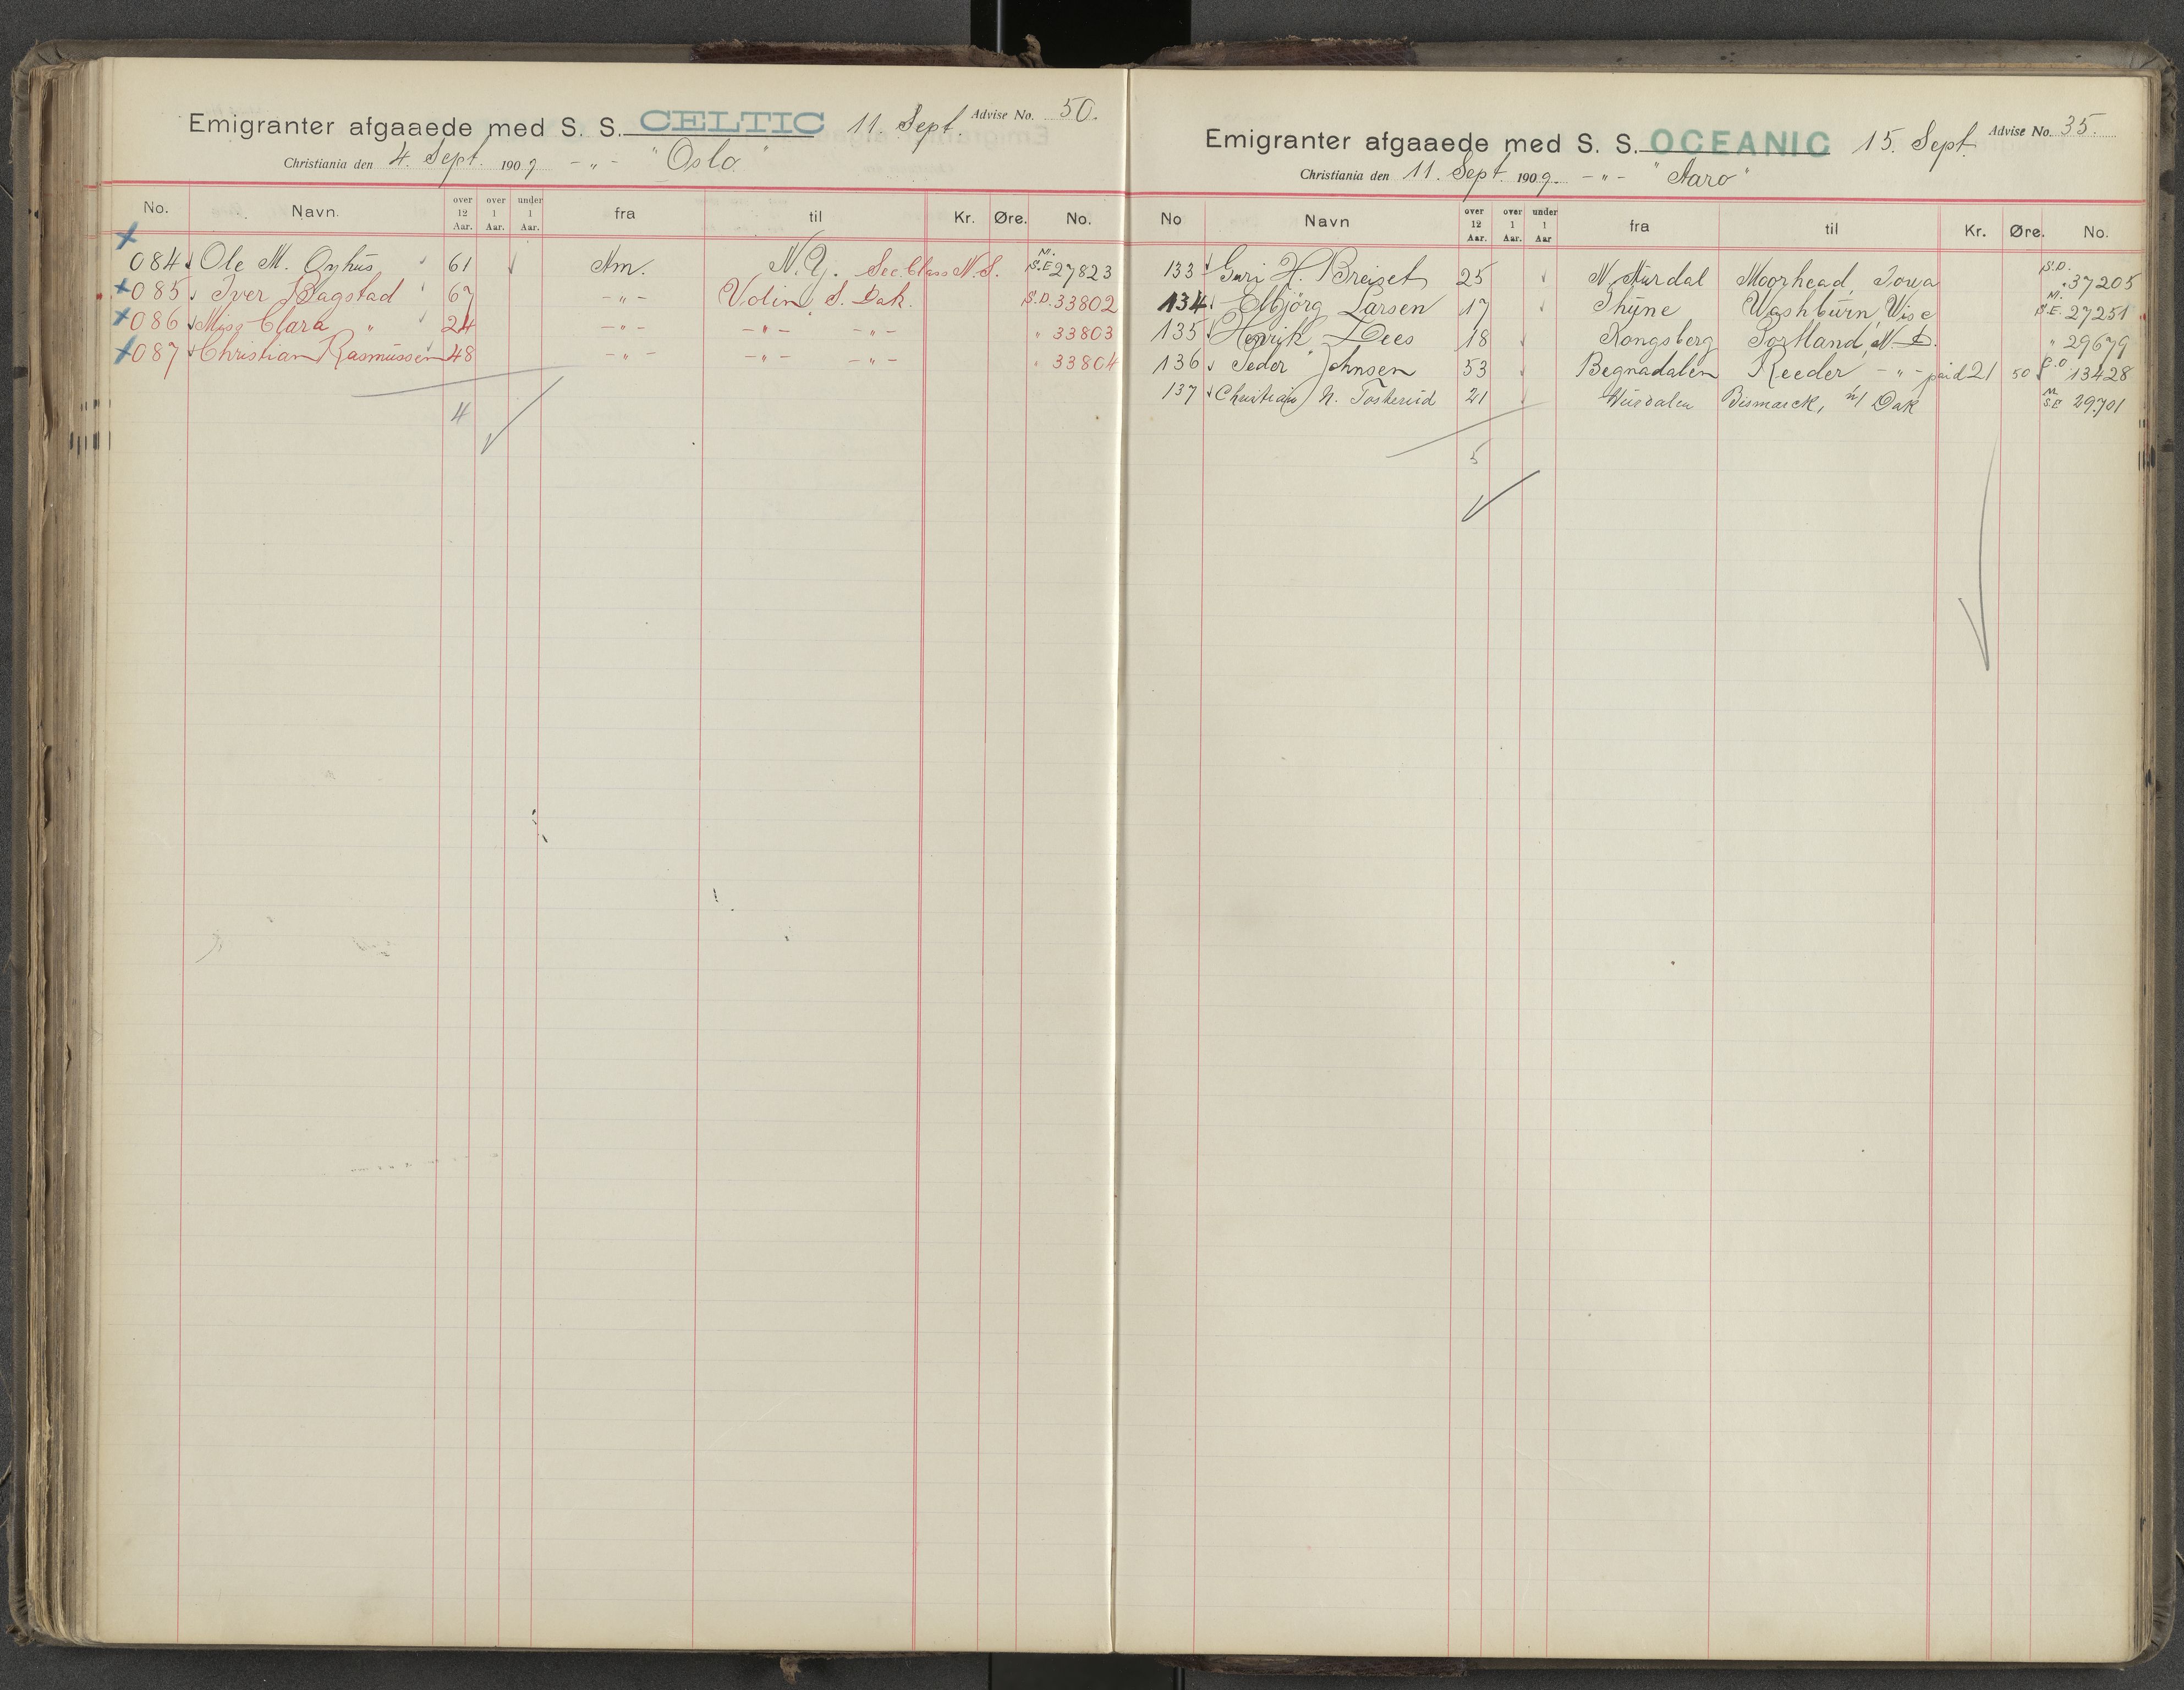 Emigranter afgaaede med S. S. CELTIC 11. Sept. Advise No. 50.
Christiania den 4. Sept. 1909 - " - "Oslo"
No. Navn. over 12 Aar. over 1 Aar. under 1 Aar. fra til Kr. Øre. No.
084 Ole M. Öyhus 61 Am. N.Y. Sec. Class N.S. M. S.E 27823
085 Iver Bagstad 67 - " - Volin S. Dak. S.D. 33802
086 Miss Clara " 24 - " - - " - - " - " 33803
087 Christian Rasmussen 48 - " - - " - - " - " 33804
4
Emigranter afgaaede med S. S. OCEANIC 15. Sept. Advise No. 35.
Christiania den 11. Sept. 1909. - " - "Aaro"
No Navn over 12 Aar. over 1 Aar. under 1 Aar fra til Kr. Øre. No.
133 Guri H. Breiset 25 N. Aurdal Moorhead, Iowa S.D. 37205
134 Elbjörg Larsen 17 Thune Washburn, Wisc M. S.E. 27251
135 Henrik Dees 18 Kongsberg Portland, N. D. " 29679
136 Peder Johnsen 53 Begnadalen Reeder - " - paid 21 50 C.O 13428
137 Christian N. Toskerud 21 Bismarck, N/ Dak M. S.E 29701
5